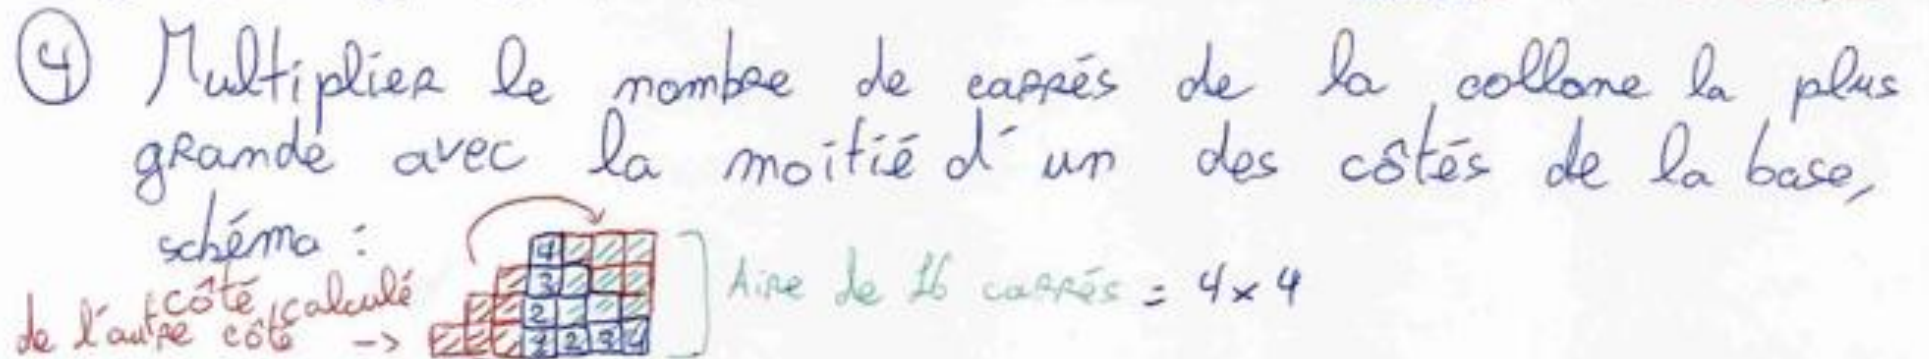 ④ Multiplier le nombre de carrés de la collone la plus
grande avec la moitié d'un des côtés de la base,
schéma :
côté calculé
de l'autre côté ->
4
3
2
1 2 3 4
Aire de 16 carrés = 4 x 4